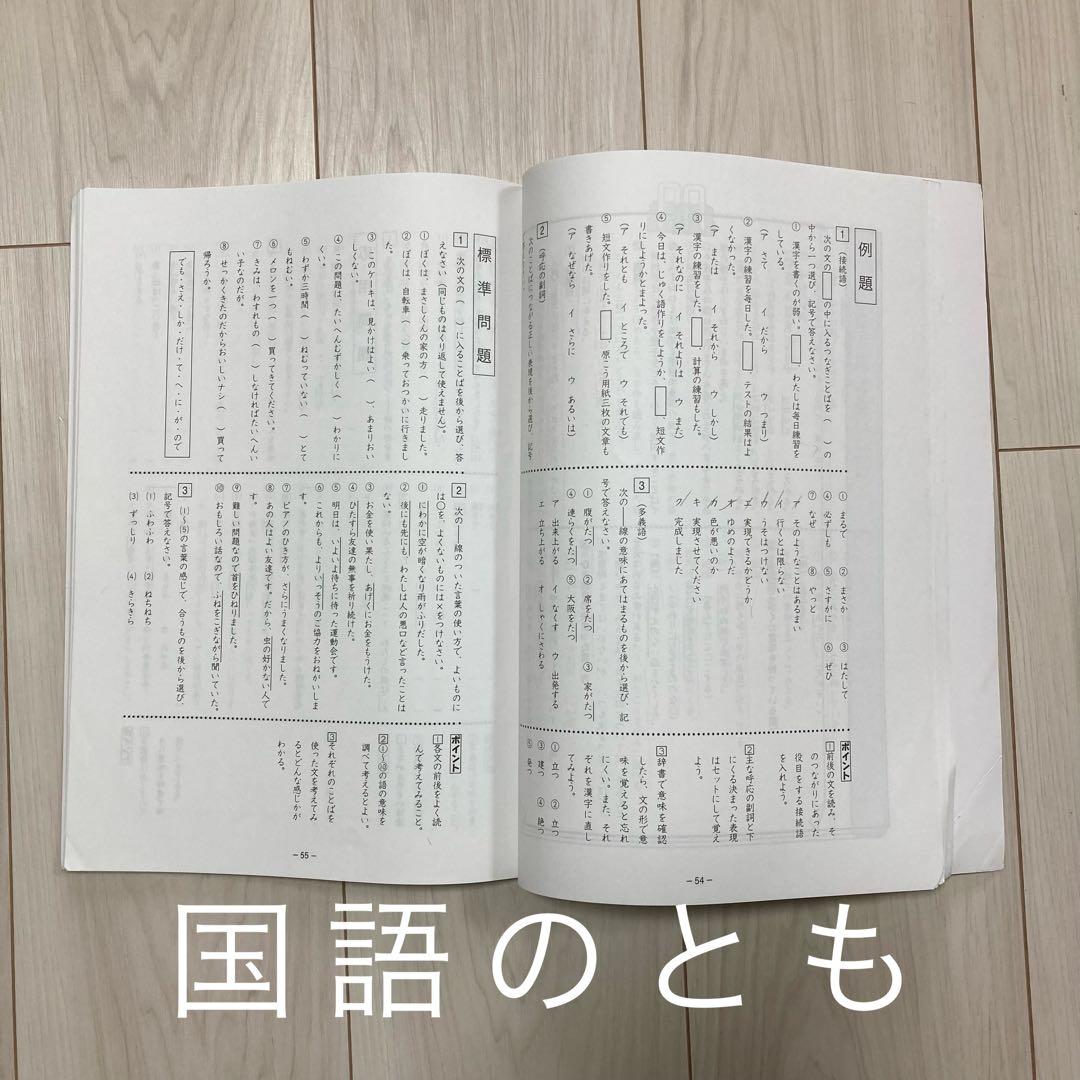 例題
1 (接続語)
次の文の□の中に入るつなぎことばを( )の
中から一つ選び、記号で答えなさい。
① 漢字を書くのが弱い。□、わたしは毎日練習を
している。
(ア さて イ だから ウ つまり)
② 漢字の練習を毎日した。□、テストの結果はよ
くなかった。
(ア または イ それから ウ しかし)
③ 漢字の練習をした。□、計算の練習もした。
(ア それなのに イ それよりは ウ また)
④ 今日は、じゅく語作りをしようか、□短文作
りにしようかとまよった。
(ア それとも イ ところで ウ それでも)
⑤ 短文作りをした。□原こう用紙三枚の文章も
書きあげた。
(ア なぜなら イ さらに ウ あるいは)
2 (呼応の副詞)
次のことばにつながる正しい表現を後から選び、記号
① まるで ② まさか ③ はたして
④ 必ずしも ⑤ さすがに ⑥ ぜひ
⑦ なぜ ⑧ やっと
ア そのようなことはあるまい
イ 行くとは限らない
ウ うそはつけない
エ 実現できるかどうか
オ ゆめのようだ
カ 色が悪いのか
キ 実現させてください
ク 完成しました
3 (多義語)
次の――線の意味にあてはまるものを後から選び、記
号で答えなさい。
① 腹がたつ ② 席をたつ ③ 家がたつ
④ 連らくをたつ ⑤ 大阪をたつ
ア 出来上がる イ なくす ウ 出発する
エ 立ち上がる オ しゃくにさわる
ポイント
1 前後の文を読み、そ
のつながりにあった
役目をする接続語
を入れよう。
2 主な呼応の副詞と下
にくる決まった表現
はセットにして覚え
よう。
3 辞書で意味を確認
したら、文の形で意
味を覚えると忘れ
にくい。また、それ
ぞれを漢字に直し
てみよう。
① 立つ ② 立つ
③ 建つ ④ 絶つ
⑤ 発つ
-54-
標準問題
1 次の文の( )に入ることばを後から選び、答
えなさい(同じものはくり返して使えません)。
① ぼくは、まさしくんの家の方( )走りました。
② ぼくは、自転車( )乗っておつかいに行きまし
た。
③ このケーキは、見かけはよい( )、あまりおい
しくない。
④ この問題は、たいへんむずかしく( )わかりに
くい。
⑤ わずか三時間( )ねむっていない( )とて
もねむい。
⑥ メロンを一つ( )買ってきてください。
⑦ きみは、わすれもの( )しなければたいへんい
い子なのだが。
⑧ せっかくきたのだからおいしいナシ( )買って
帰ろうか。
でも・さえ・しか・だけ・て・へ・に・が・ので
2 次の――線のついた言葉の使い方で、よいものに
は○を、よくないものには×をつけなさい。
① にわかに空が暗くなり雨がふりだした。
② 後にも先にも、わたしは人の悪口など言ったことは
ない。
③ お金を使い果たし、あげくにお金をもうけた。
④ ひたすら友達の無事を祈り続けた。
⑤ 明日は、いよいよ待ちに待った運動会です。
⑥ これからも、よりいっそうのご協力をおねがいしま
す。
⑦ ピアノのひき方が、さらにうまくなりました。
⑧ あの人はよい友達です。だから、虫の好かない人で
す。
⑨ 難しい問題なので首をひねりました。
⑩ おもしろい話なので、ふねをこぎながら聞いていた。
3 (1)~(5)の言葉の感じで、合うものを後から選び、
記号で答えなさい。
(1) ふわふわ (2) ねちねち
(3) ずっしり (4) きらきら
ポイント
1 各文の前後をよく読
んで考えてみること。
2 ①~⑩の語の意味を
調べて考えるとよい。
3 それぞれのことばを
使った文を考えてみ
るとどんな感じかが
わかる。
-55-
国語のとも